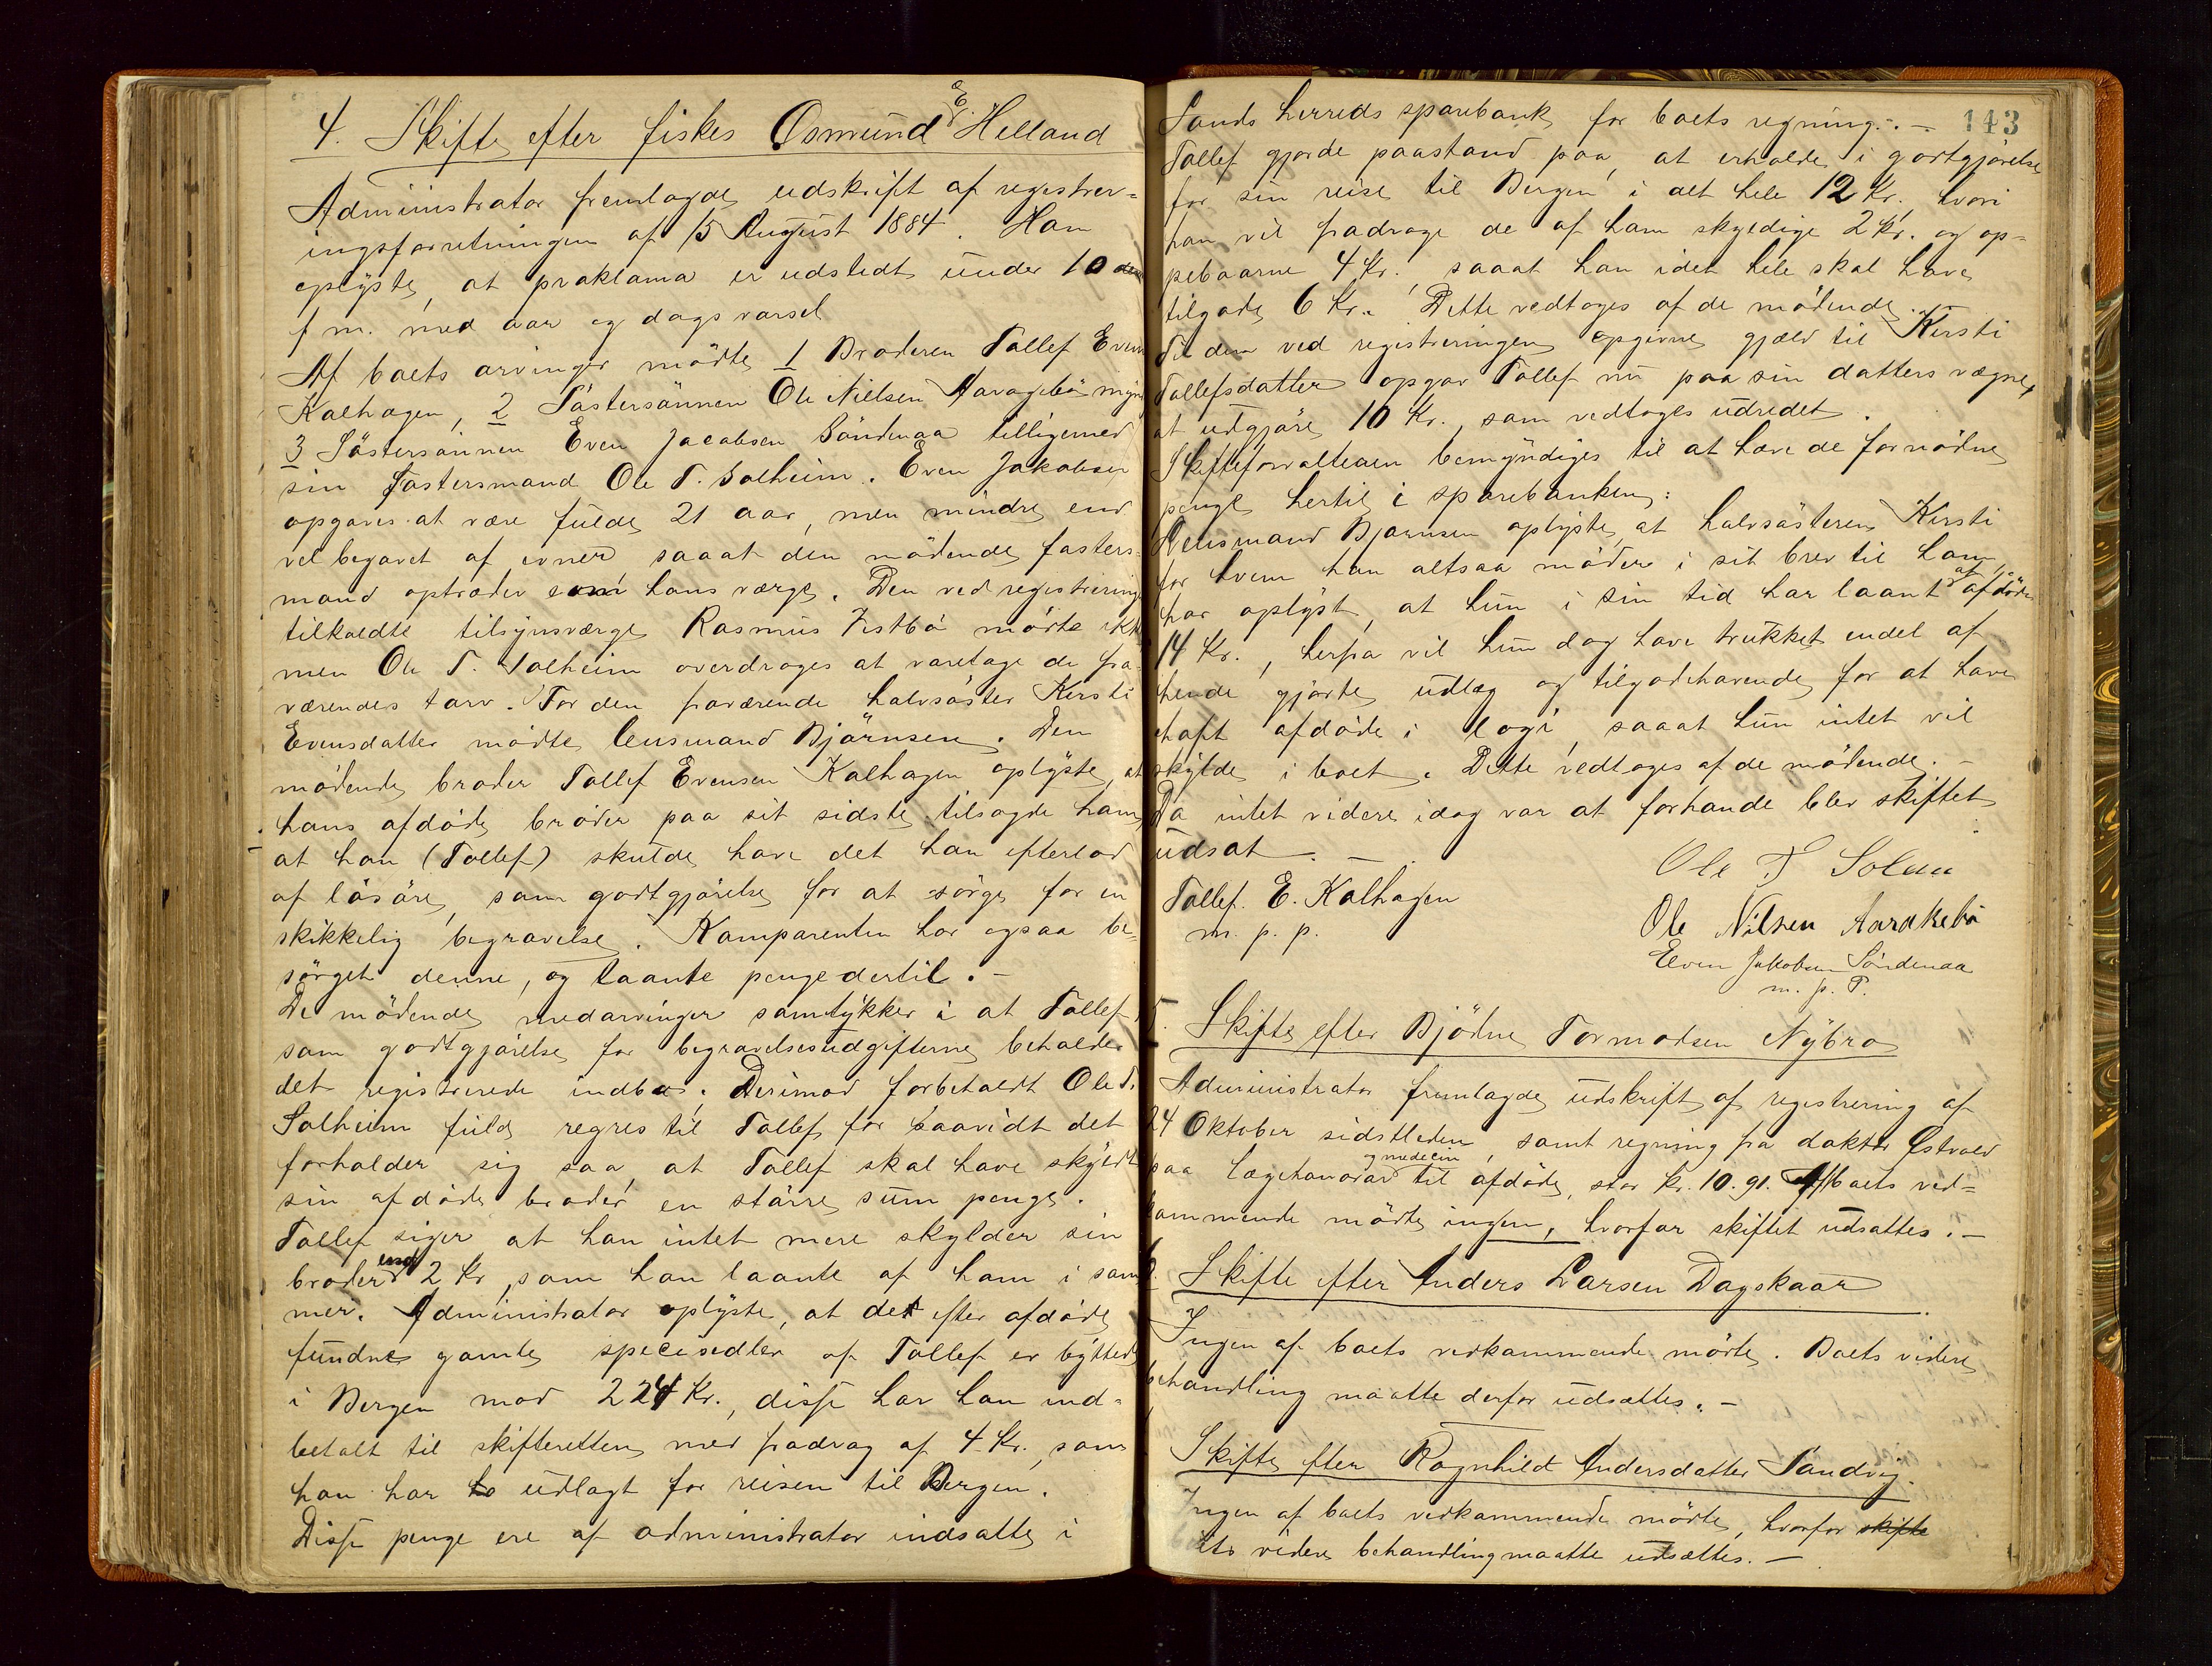 4. Skifte efter fisker Osmund E. Helland
Administrator fremlagde udskrift af registrer-
ingsforretningen af 15 August 1884. Han
oplyste, at proklama er udstedt under 10 den
f m. med aar og dags varsel
Af boets arvinger mödte 1 Broderen Tollef Evens
Kalhagen, 2 Söstersönnen Ole Nielsen Aaragebö myn
3 Söstersönnen Even Jacobsen Söndenaa tilligemed
sin Fostersmand Ole T. Solheim. Even Jakobsen
opgaves at være fulde 21 aar, men mindre end
vel begavet af evner saaat den mödende fosters-
mand optræder som hans værge. Den ved registrering
tilkaldte tilsynsværge Rasmus Vestbö mödte ikke
men Ole T. Solheim overdroges at varetage de fra-
værendes tarv. For den fraværende halvsöster Kersti
Evensdatter mödte lensmand Björnsen. Den
mödende broder Tollef Evensen Kalhagen oplyste, at
hans afdöde broder paa sit sidste tilsagde ham,
at han (Tollef) skulde have det han efterlod
af lösöre, som godtgjörelse for at sörge for en
skikkelig begravelse. Komparenten har ogsaa be-
sörget denne, og laante penge dertil. –
De mödende medarvinger samtykker i at Tollef,
som godtgjörelse for begravelsesudgifterne beholder
det registrerede indbo. Derimod forbeholdt Ole T.
Solheim fuld regres til Tollef for saavidt det
forholder sig saa, at Tollef skal have skyldt
sin afdöde broder en större sum penge.
Tollef siger at han intet mere skylder sin
broder end 2 Kr, som han laante af ham i som
mer. Administrator oplyste, at det efter afdöde
fundne gamle speciesedler af Tollef er byttede
i Bergen mod 224 Kr., disse har han ind-
betalt til skifteretten med fradrag af 4 Kr., som
han har to udlagt for reisen til Bergen.
Disse penge ere af administrator indsatte i
143
Sands herreds sparebank for boets regning. –
Tollef gjorde paastand paa, at erholde i godtgjörelse
for sin reise til Bergen i det hele 12 Kr. hvori
han vil fradrage de af ham skyldige 2 Kr. og op-
pebaarne 4 Kr., saaat han idet hele skal have
tilgode 6 Kr. Dette vedtoges af de mödende.
Til den ved registreringen opgivne gjæld til Kersti
Tollefsdatter opgav Tollef nu paa sin datters vegne,
at udgjöre 10 Kr., som vedtoges udredet.
Skifteforvalteren bemyndiges til at hæve de fornödne
penge hertil i sparebanken:
Lensmand Bjørnsen oplyste, at halvsösteren Kersti
for hvem han altsaa möder i sit brev til ham,
har oplyst, at hun i sin tid har laant af afdöde
14 Kr., herfra vil hun dog have trukket endel af
hende gjorte udlæg og tilgodehavende for at have
havt afdöde i logi, saaat hun intet vil
skylde i boet. Dette vedtoges af de mödende. –
Da intet videre idag var at forhande blev skiftet
udsat. –
Ole T Solem
Tollef. E. Kalhagen
m. p. p.
Ole Nilsen Aarakebö
Even Jakobsen Söndenaa
m. p. P.
5. Skifte efter Björne Tormodsen Nybro
Administrator fremlagde udskrift af registrering af
24 Oktober sidstleden, samt regning fra doktor Østvold
paa lægehonorar og medecin til afdöde, stor Kr. 10.91. Af boets ved-
kommende mödte ingen, hvorfor skiftet udsattes. –
6. Skifte efter Anders Larsen Dagskaar
Ingen af boets vedkommende mödte. Boets videre
behandling maatte derfor udsættes. –
Skifte efter Ragnhild Andersdatter Sandvig.
Ingen af boets vedkommende mödte, hvorfor skifte
ets videre behandling maatte udsættes. –